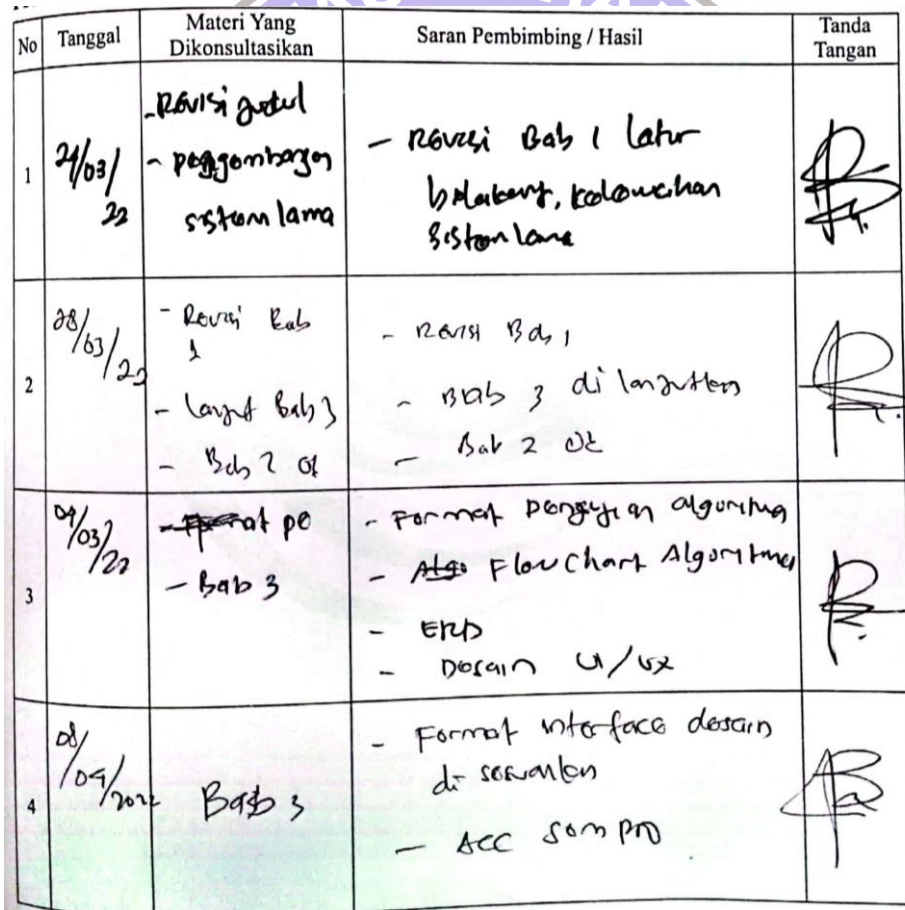 No Tanggal Materi Yang Dikonsultasikan Saran Pembimbing / Hasil Tanda Tangan
1
24/03/22
- Revisi judul
- penggambaran
sistem lama
- Revisi Bab 1 latar
belakang, kelemahan
sistem lama
2
28/03/22
- Revisi Bab
1
- lanjut Bab 3
- Bab 2 ok
- Revisi Bab 1
- Bab 3 di lanjutken
- Bab 2 ok
3
04/03/22
- Bab 3
- Format pengujian algoritma
- Algo Flowchart Algoritma
- ERD
- Desain UI/UX
4
08/04/2022
Bab 3
- Format interface desain
di sesuaikan
- ACC sempro